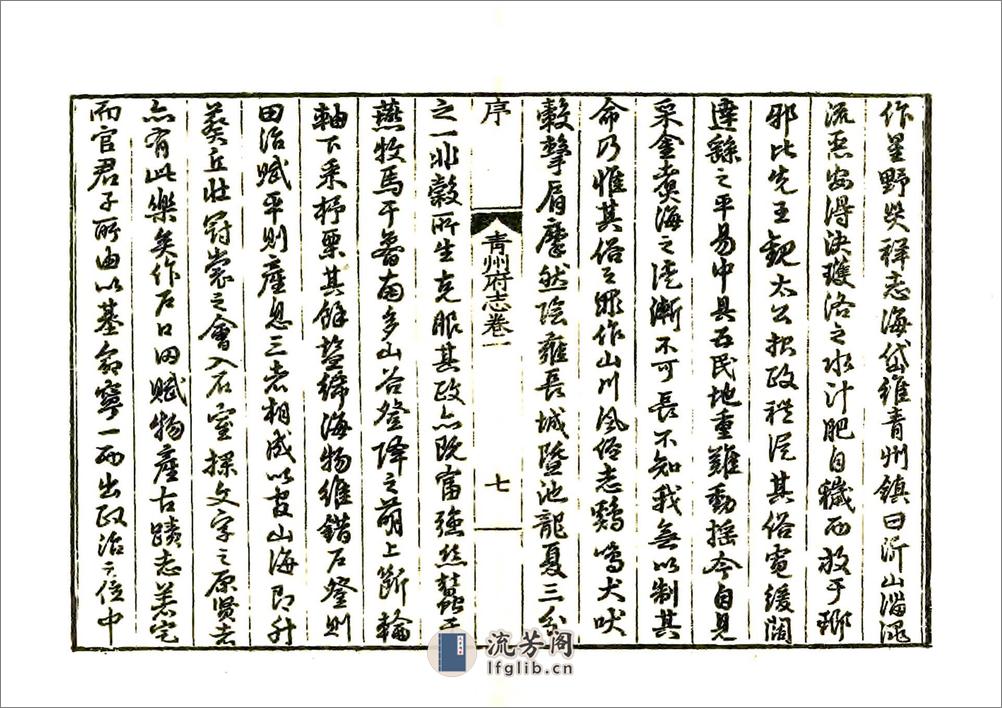 作星野災祥志海岱維青州鎮曰沂山淄澠
流惡安得決瓁洛之水汁肥自穢而放于瑯
邪比先王觀太公報政禮從其俗寬緩闊
達繇之平易中具五民地重難動搖今自見
采金煮海之溼漸不可長不知我無以制其
命乃惟其俗之罪作山川風俗志鷄鳴犬吠
轂擊肩摩然陰雍長城暨池龍夏三分
序
青州府志卷一
七
之一非穀所生克服其政亦既富強絲蠶于
燕牧馬于魯南多山谷登降之萌上斷輪
軸下采杼栗其餘鹽絺海物維錯石登則
田治賦平則產息三者相成以官山海即升
葵丘壯冠裳之會入石室探文字之原賢者
亦有此樂矣作戶口田賦物產古蹟志羔完
而官君子所由以基命寧一而出政治之位中
流芳阁
lfglib.cn